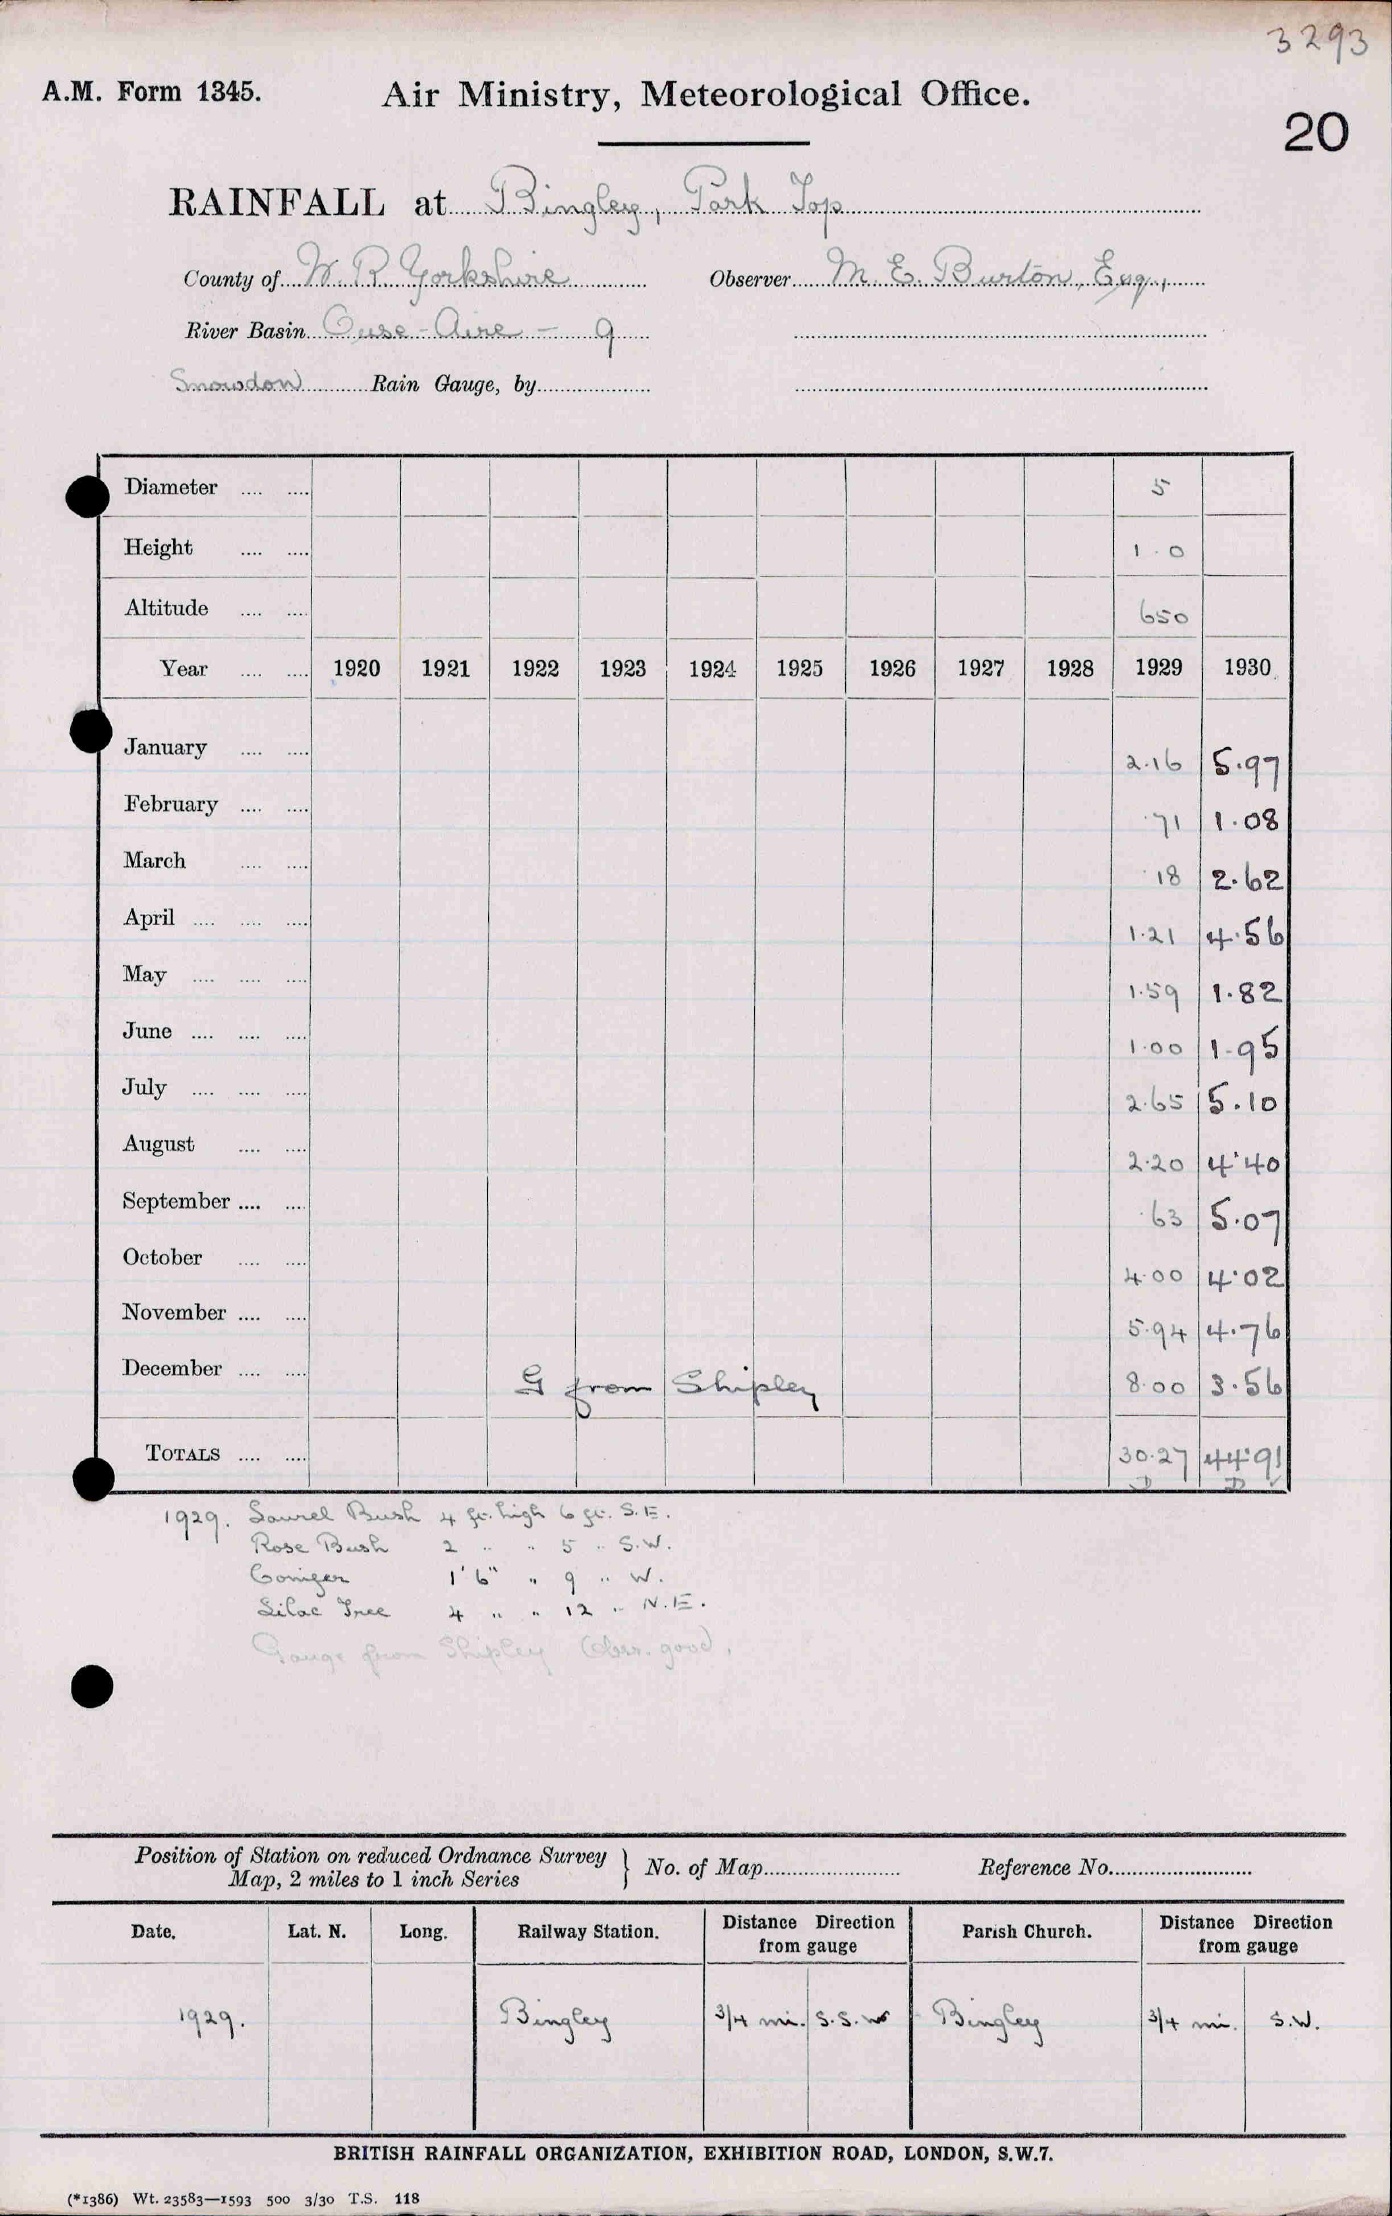 3293
A.M. Form 1345.
Air Ministry, Meteorological Office.
20
RAINFALL at Bingley, Park Top
County of W. R. Yorkshire Observer M. E. Burton, Esq.,
River Basin Ouse - Aire - 9
Snowdon Rain Gauge, by
Diameter .... .... 5
Height .... .... 1 . 0
Altitude .... .... 650
Year .... .... 1920 1921 1922 1923 1924 1925 1926 1927 1928 1929 1930
January .... .... 2.16 5.97
February .... .... .71 1.08
March .... .... .18 2.62
April .... .... .... 1.21 4.56
May .... .... .... 1.59 1.82
June .... .... .... 1.00 1.95
July .... .... .... 2.65 5.10
August .... .... 2.20 4.40
September .... .... .63 5.07
October .... .... 4.00 4.02
November .... .... 5.94 4.76
December .... .... G from Shipley 8.00 3.56
TOTALS .... .... 30.27 44.91
D D ✓
1929. Laurel Bush 4 ft. high 6 ft. S.E.
Rose Bush 2 " " 5 " S.W.
Conifer 1' 6" " 9 " W.
Lilac Tree 4 " " 12 " N.E.
Gauge from Shipley Obsr. good.
Position of Station on reduced Ordnance Survey
Map, 2 miles to 1 inch Series } No. of Map Reference No.
Date. Lat. N. Long. Railway Station. Distance Direction from gauge Parish Church. Distance Direction from gauge
1929. Bingley 3/4 mi. S.S.W Bingley 3/4 mi. S.W.
BRITISH RAINFALL ORGANIZATION, EXHIBITION ROAD, LONDON, S.W.7.
(*1386) Wt. 23583—1593 500 3/30 T.S. 118